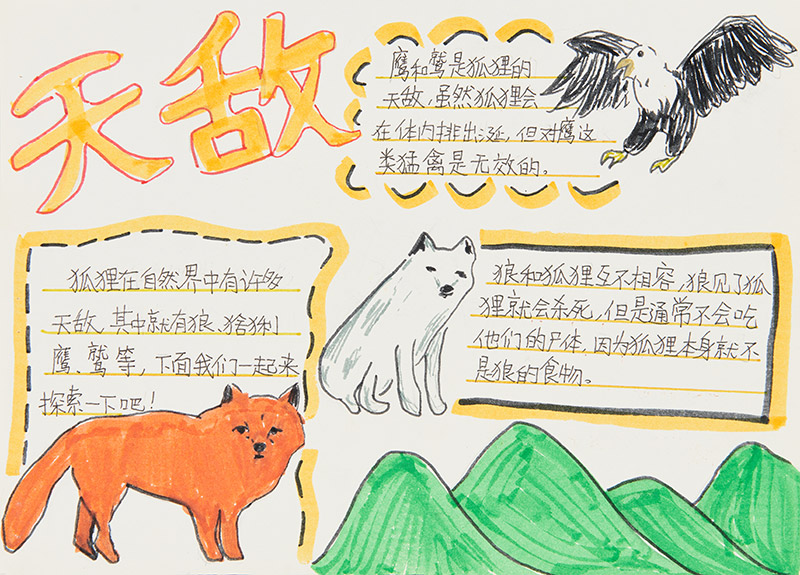 天敌
鹰和鹫是狐狸的
天敌，虽然狐狸会
在体内排出涎，但对鹰这
类猛禽是无效的。
狐狸在自然界中有许多
天敌，其中就有狼、猞猁
鹰、鹫等，下面我们一起来
探索一下吧！
狼和狐狸互不相容，狼见了狐
狸就会杀死，但是通常不会吃
他们的尸体，因为狐狸本身就不
是狼的食物。